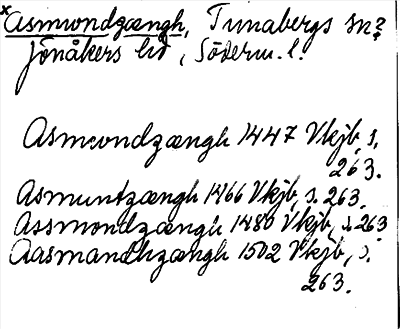 x Asmundgængh, Tunabergs sn?
Jönåkers hd, Söderm. l.
Asmundzængh 1447 Vkjb, s.
263.
Asmuntzængh 1466 Vkjb, s. 263.
Assmondzængh 1480 Vkjb, s. 263
Aasmandhzængh 1502 Vkjb, s.
263.